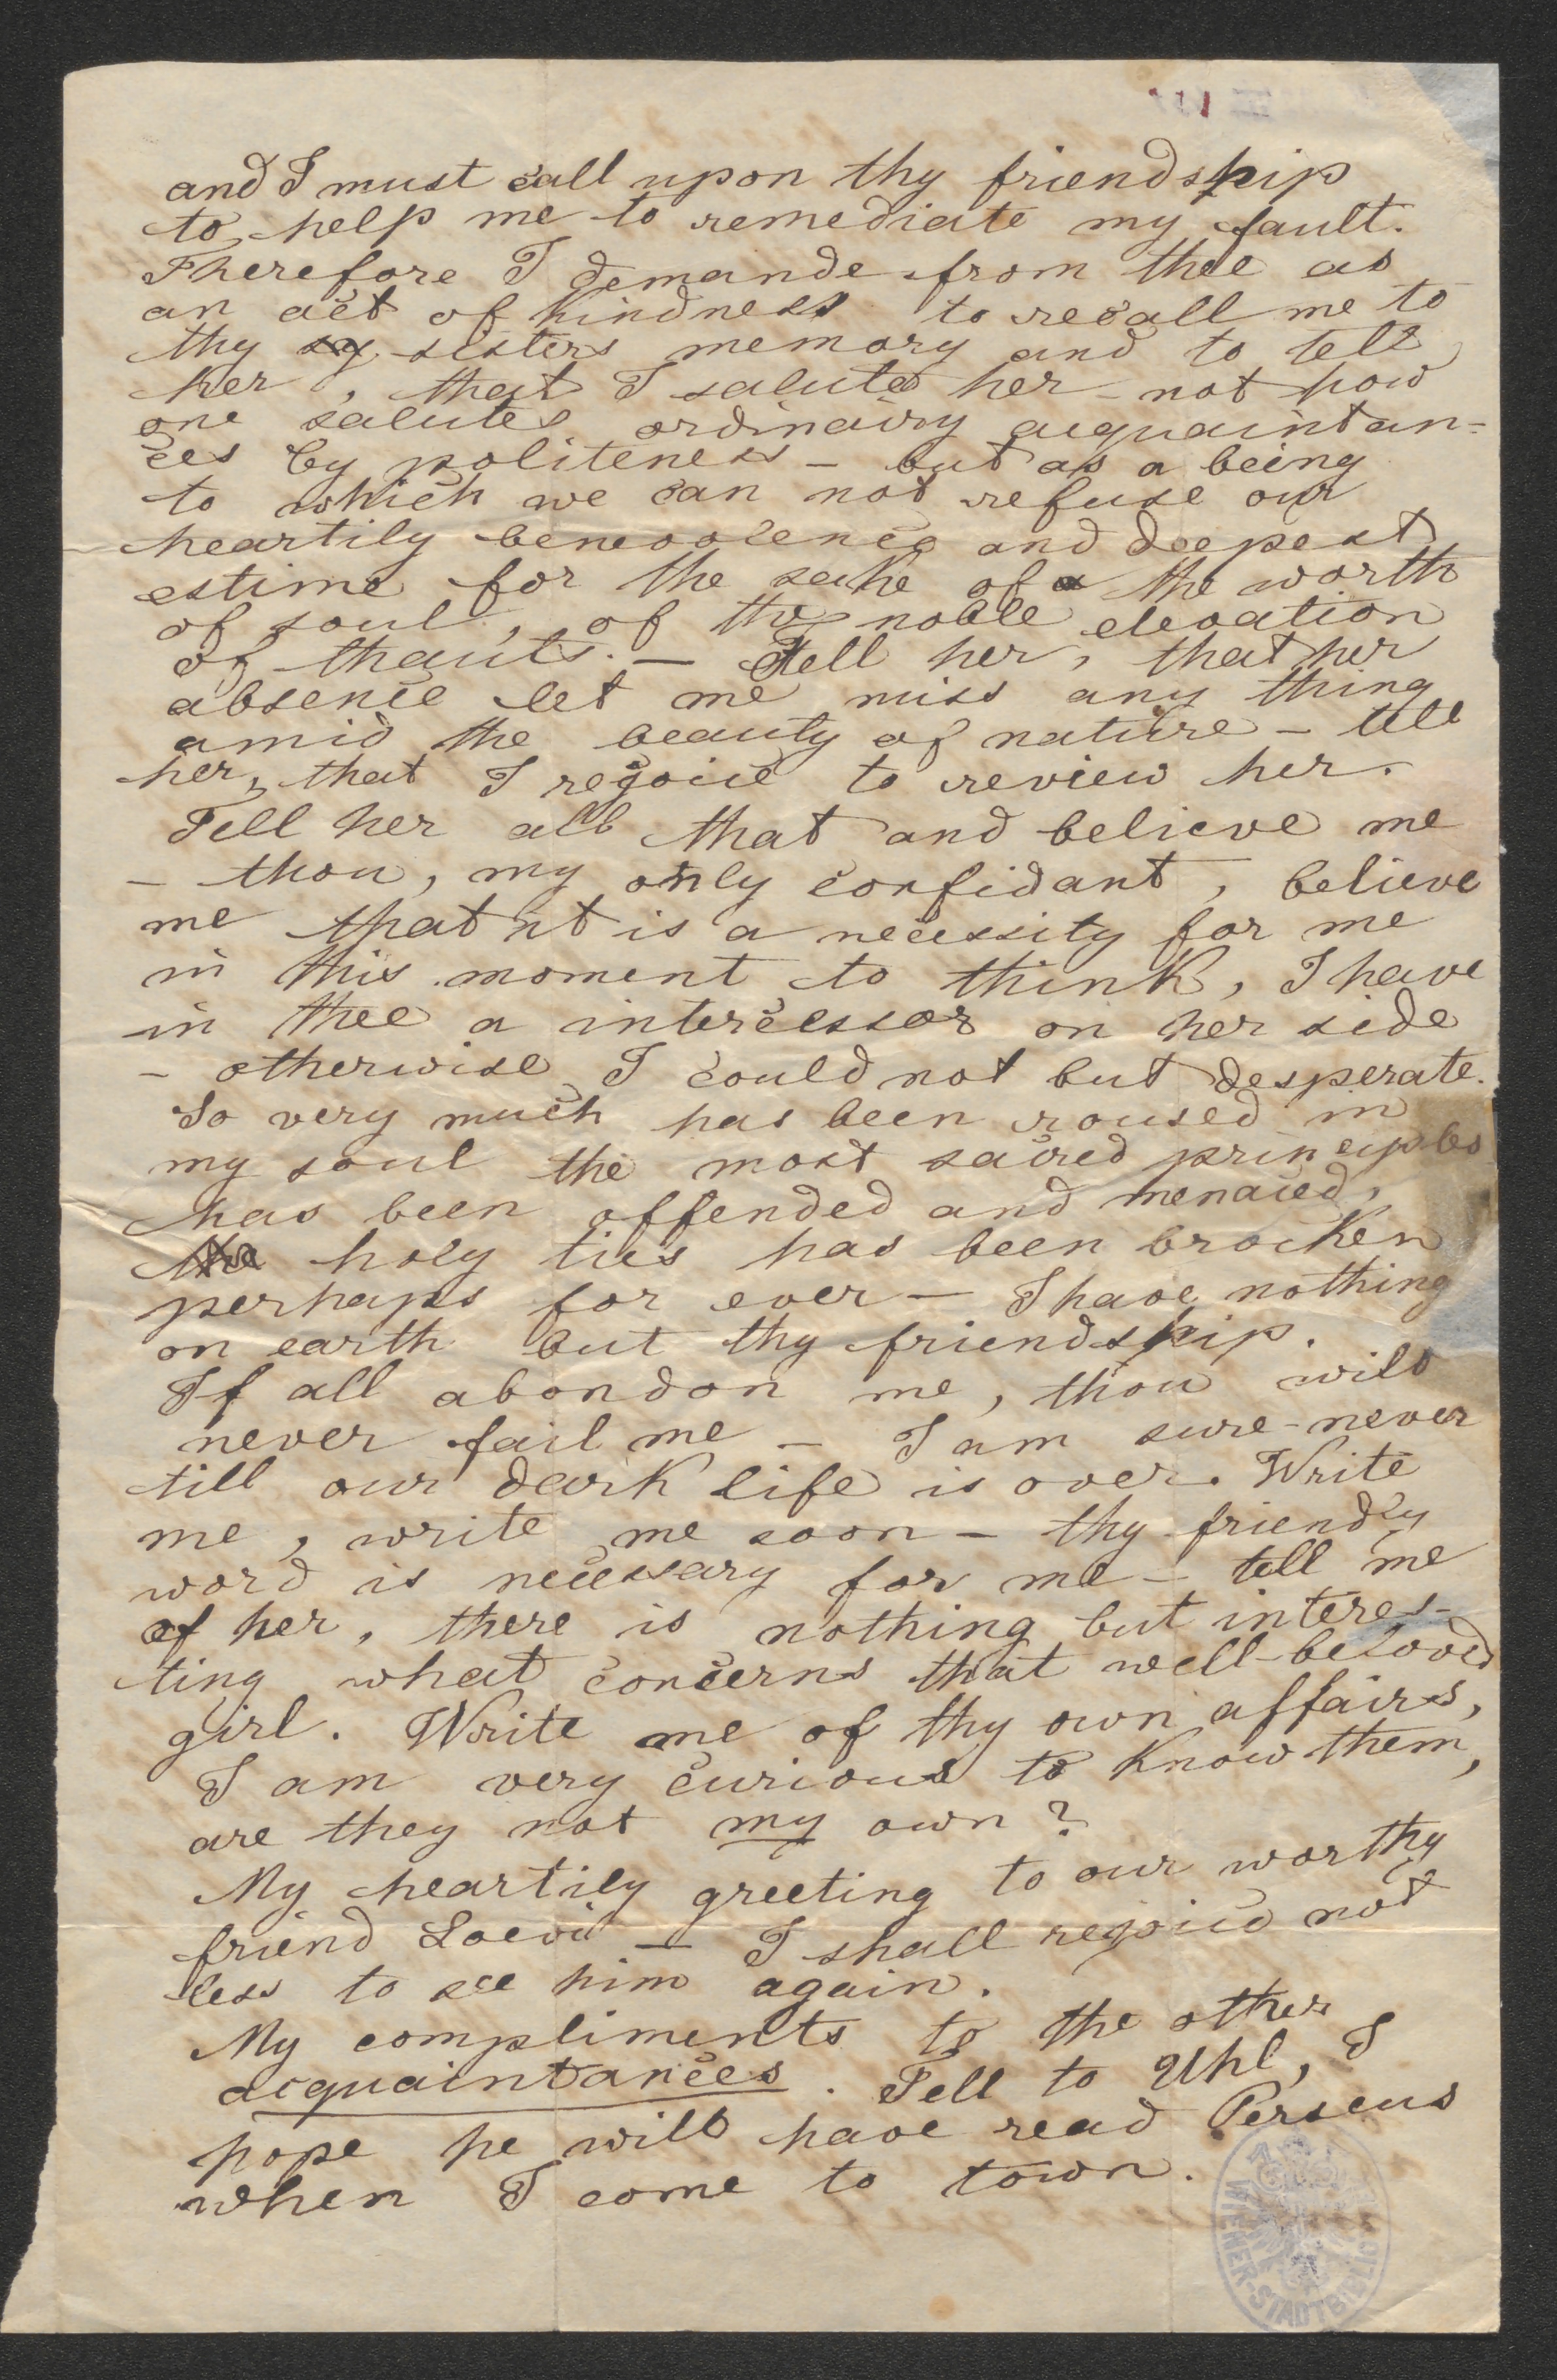 and I must call upon thy friendship
to help me to remediate my fault.
Therefore I demande from thee as
an act of kindness to recall me to
thy sisters memory and to tell
her, that I salute her - not how
one salutes ordinairy acquaintan-
ces by politeness - but as a being
to which we can not refuse our
heartily benevolence and deepest
estime for the sake of the worth
of soul, of the noble elevation
of thauts. - Tell her, that her
absence let me miss any thing
amid the beauty of nature - tell
her, that I rejoice to review her.
Tell her all that and believe me
- thou, my only confidant, believe
me that it is a necessity for me
in this moment to think, I have
in thee a intercessor on her side
- otherwise I could not but desperate.
So very much has been roused in
my soul the most sacred principles
has been offended and menaced,
the holy ties has been brocken
perhaps for ever - I have nothing
on earth but thy friendship.
If all abondon me, thou wilt
never fail me - I am sure - never
till our dark life is over. Write
me, write me soon - thy friendly
word is necessary for me - tell me
of her, there is nothing but interes-
ting what concerns that well-beloved
girl. Write me of thy own affairs,
I am very curious to know them,
are they not my own?
My heartily greeting to our worthy
friend Loewi - I shall rejoice not
less to see him again.
My compliments to the other
acquaintances. Tell to Uhl, I
hope he will have read Perseus
when I come to town.
WIENER-STADTBIBLIOTHEK